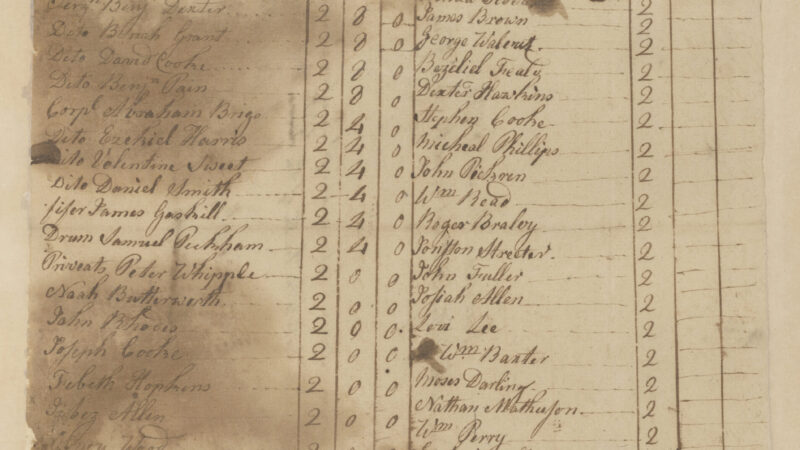 Serjn Benj Dexter 2 8 0
Dito Binah Grant 2 8 0
Dito David Cooke 2 8 0
Dito Benjm Pain 2 8 0
Corpl Abraham Brigs 2 4 0
Dito Ezekiel Harris 2 4 0
Dito Valentine Sweet 2 4 0
Dito Daniel Smith 2 4 0
fifer James Gaskill 2 4 0
Drum Samuel Peckham 2 4 0
Priveats Peter Whipple 2 0 0
Noah Butterworth 2 0 0
John Rhodes 2 0 0
Joseph Cooke 2 0 0
Hopkins 2 0 0
Jabez Allen 2 0 0
James Brown 2
George Walcutt 2
Beziliel 2
Dexter Hawkins 2
Stephen Cooke 2
Micheal Phillips 2
John Pickren 2
Wm Read 2
Roger Braley 2
Streeter 2
John Fuller 2
Josiah Allen 2
Levi Lee 2
Wm Baxter 2
Moses Darling 2
Nathan Mathuson 2
Wm Perry 2